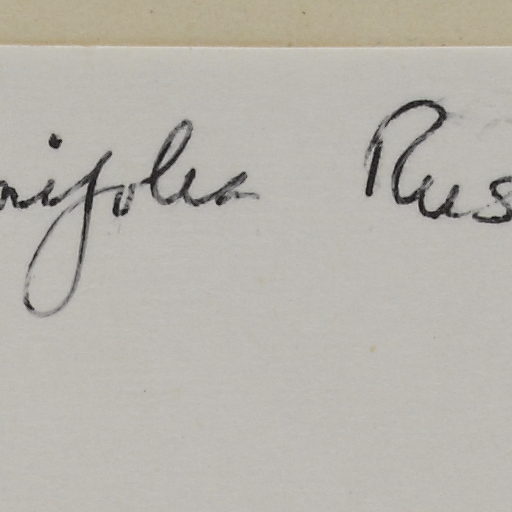 nifolia Rus